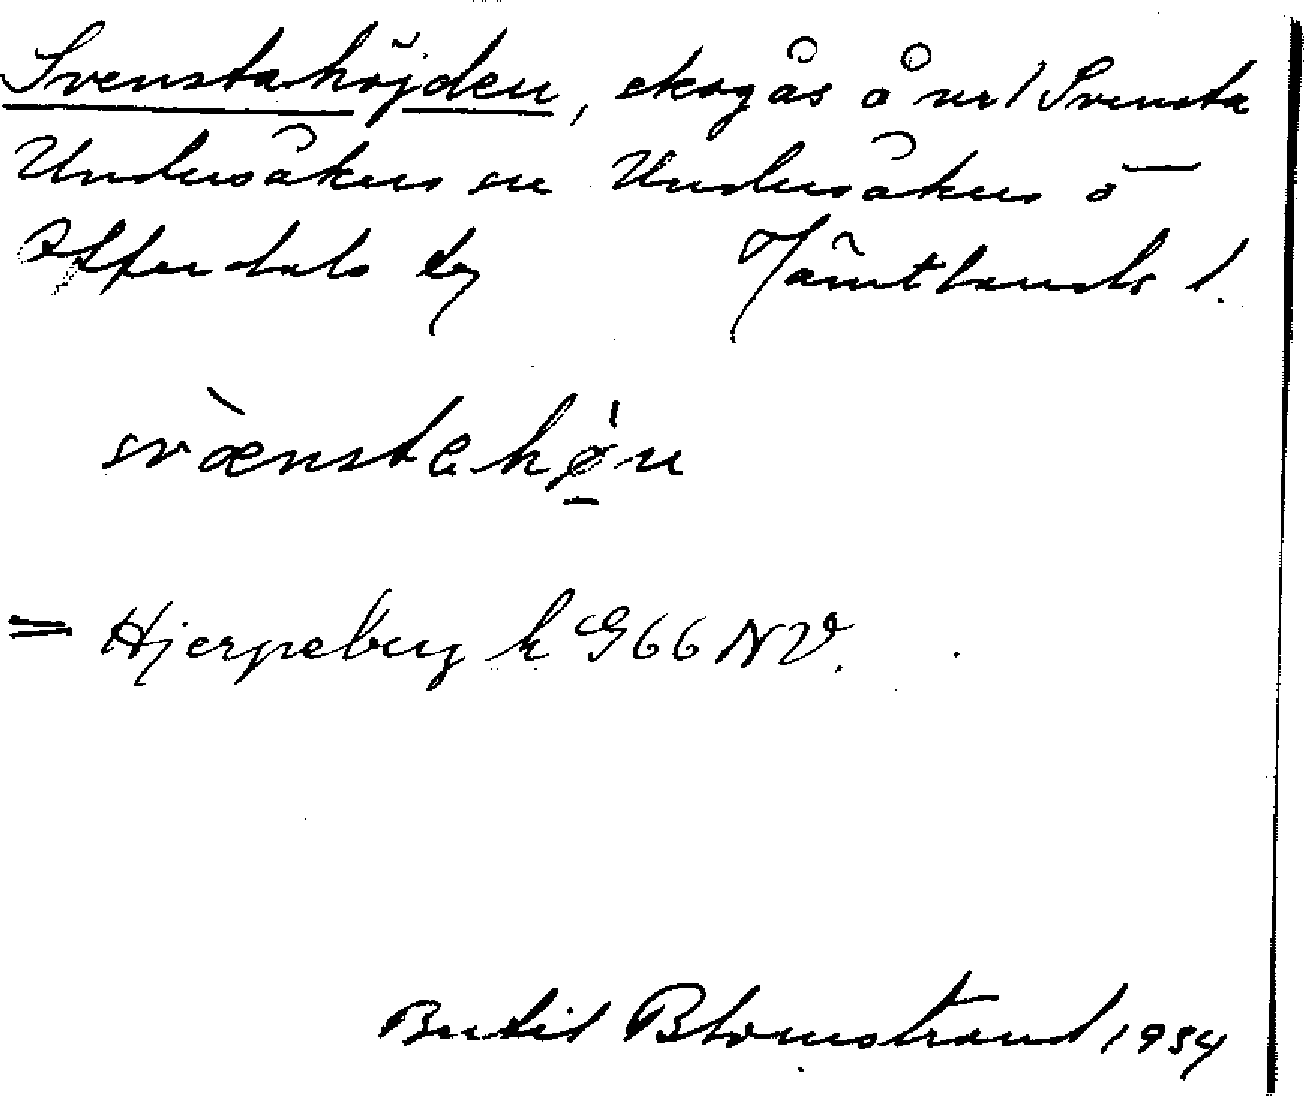 Svenstahöjden, skogås å nr 1 Svensta
Undersåkers sn Undersåkers o
Offerdals tg Jämtlands l.
svænstahøn
= Hjerpeberg k G66 NV.
Bertil Blomstrand 1934